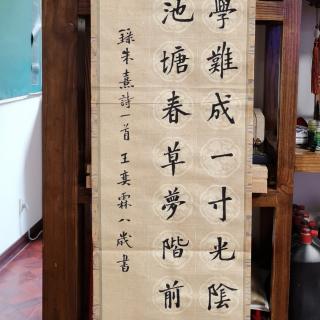 學難成一寸光陰
池塘春草夢階前
錄朱熹詩一首王奕霖八歲書